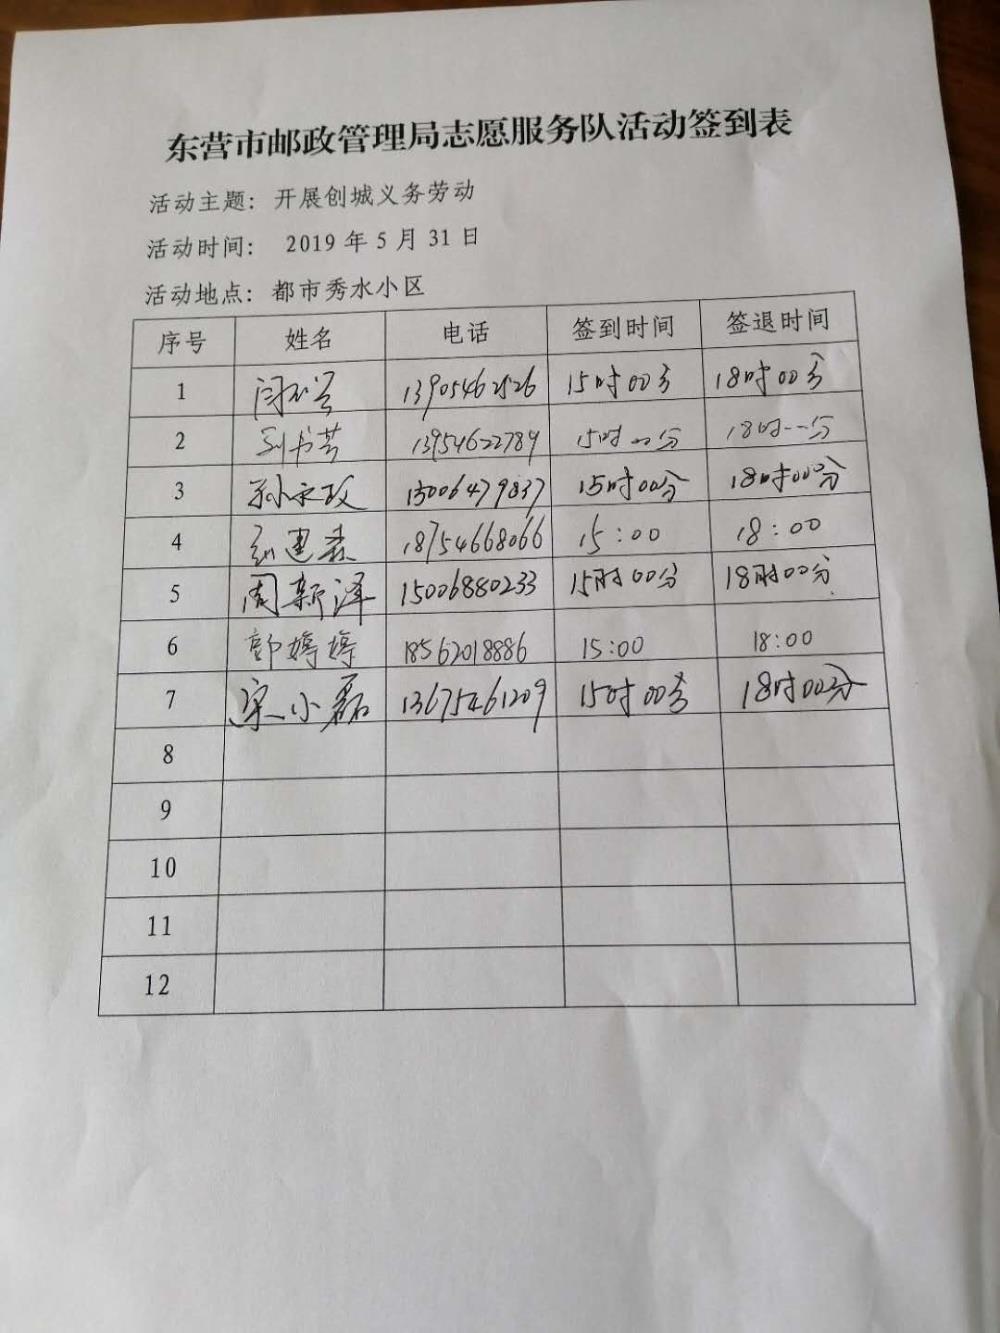 东营市邮政管理局志愿服务队活动签到表
活动主题：开展创城义务劳动
活动时间： 2019 年 5 月 31 日
活动地点：都市秀水小区
序号 姓名 电话 签到时间 签退时间
1 13905462526 15时00分 18时00分
2 刘书芸 13954622789 15时--分 18时--分
3 孙永政 13006479837 15时00分 18时00分
4 刘建森 18754668066 15:00 18:00
5 周新泽 15006880233 15时00分 18时00分
6 郭婷婷 18562018886 15:00 18:00
7 宋小磊 13675461209 15时00分 18时00分
8
9
10
11
12